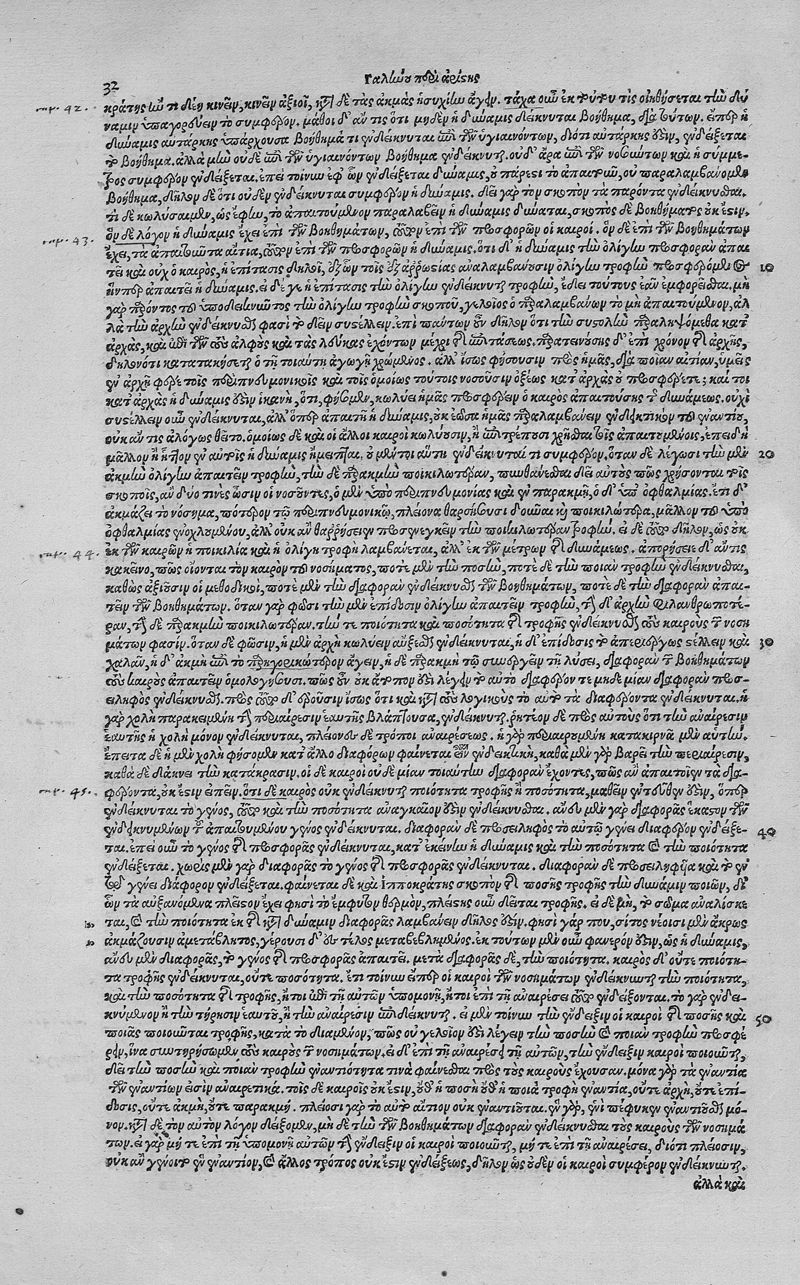 32
Γαλίωου περὶ ἀρίςης
παρ. 42.
κράτης ὧν τι δέῃ κινεῖν, κινεῖν ἀξιοῖ, κατὰ δὲ τὰς ἀκμὰς ἡσυχίαν ἄγειν. τάχα οὖν ἐκ τούτου τις οἰηθήσεται τὴν δύ
ναμιν ὑπαγορεύειν τὸ συμφέρον. μάθοι δ' ἄν τις ὅτι μηδὲν ἡ δύναμις δείκνυται βοήθημα, διὰ τούτων. εἴπερ ἡ
δύναμις αὐτάρκης ὑπάρχουσα βοήθημά τι ἐνδείκνυται ἐπὶ τῶν ὑγιαινόντων, διότι αὐτάρκης ἐστὶν, ἐνδείξεται
τὸ βοήθημα. ἀλλὰ μὴν οὐδὲ ἐπὶ τῶν ὑγιαινόντων βοήθημα ἐνδείκνυται. οὐδ' ἄρα ἐπὶ τῶν νοσούντων καὶ ἡ σύμμε
τρος συμφέρον ἐνδείξεται. ἐπεὶ τοίνυν ἐφ' ὧν ἐνδείξεται δύναμις, οὐ πάρεστι τὸ ἀπαιτοῦν, οὐ παραλαμβανομεν
βοήθημα, δῆλον δὲ ὅτι οὐδὲν ἐνδείκνυται συμφέρον ἡ δύναμις. δεῖ γὰρ τὸν σκοπὸν τὰ παρόντα ἐνδείκνυσθαι.
τί δὲ κωλύσαιμεν, ὡς ἔφην, τὸ ἀπαιτούμενον παραλαβεῖν ἡ δύναμις δύναται, σκοπὸς δὲ βοηθήματος οὐκ ἔστιν.
παρ. 43.
ὃν δὲ λόγον ἡ δύναμις ἔχει ἐπὶ τῶν βοηθημάτων, τοῦτον ἐπὶ τῶν προσφορῶν οἱ καιροί. ὃν δὲ ἐπὶ τῶν βοηθημάτων
ἔχει, τὰ ἀπαιτοῦντα αἴτια, τοῦτον ἐπὶ τῶν προσφορῶν ἡ δύναμις. ὅτι δ' ἡ δύναμις τὴν ὀλίγην προσφορὰν ἀπαι
10
τεῖ καὶ οὐχ ὁ καιρὸς, ἡ ἐπίτασις δηλοῖ, ἐξ ὧν τοῖς ἐξ ἀρρωσίας ἀναλαμβάνουσιν ὀλίγην τροφὴν προσφερόμεθα
ἥνπερ ἀπαιτεῖ ἡ δύναμις. εἰ δέ γε ἡ ἐπίτασις τὴν ὀλίγην ἐνδείκνυται τροφὴν, ἔδει τούτους ἐᾶν ἐμφορεῖσθαι. μὴ
γὰρ παρόντος τοῦ ὑποδεικνύοντος τὴν ὀλίγην τροφὴν σκοποῦ, γελοῖος ὁ παραλαμβάνων τὸ μὴ ἀπαιτούμενον, ἀλ
λὰ τὴν ἀρχὴν ἐνδείκνυσθαι φασὶ τὸ δεῖν συστέλλειν. ἐπὶ πάντων οὖν δῆλον ὅτι τὴν συστολὴν παραληψόμεθα κατ'
ἀρχὰς, καὶ ἐπὶ τῶν τοὺς ἀλφοὺς καὶ τὰς λεύκας ἐχόντων μέχρι τῆς ἐπιτάσεως. παρατεινούσης δ' ἐπὶ χρόνον τῆς ἀρχῆς,
δηλονότι κατατακήσεται ὁ τῇ τοιαύτῃ ἀγωγῇ χρώμενος. ἀλλ' ἴσως φήσουσιν πρὸς ἡμᾶς, διὰ ποίαν αἰτίαν, ὑμεῖς
ἐν ἀρχῇ φέρετε τοῖς περιπνευμονικοῖς καὶ τοῖς ὁμοίως τούτοις νοσοῦσιν ὀξέως κατ' ἀρχὰς οὐ προσφέρετε; καί τοι
κατ' ἀρχὰς ἡ δύναμις ἐστὶν ἱκανὴ, ὅτι, φήσομεν, κωλύει ἡμᾶς προσφέρειν ὁ καιρὸς ἀπαιτούσης τῆς δυνάμεως. οὐχὶ
συστέλλειν οὖν ἐνδείκνυται, ἀλλ' ὅπερ ἀπαιτῇ ἡ δύναμις, οὐκ ἐῶσα ἡμᾶς παραλαμβάνειν ἐνδεικτικὸν τοῦ ἐναντίου,
οὐκ ἄν τις ἀλόγως θεῖτο. ὁμοίως δὲ καὶ οἱ ἄλλοι καιροὶ κωλύσιν, ἢ ἐπιτρέπουσι χρῆσθαι τοῖς ἀπαιτουμένοις, ἐπειδὴ
μᾶλλον ἢ ἧττον ἐν αὐτοῖς ἡ δύναμις ἠμείπται. οὐ μέντοι αὐτὴ ἐνδείκνυταί τι συμφέρον. ὅταν δὲ λέγωσι τὴν μὲν
20
ἀκμὴν ὀλίγην ἀπαιτεῖν τροφὴν, τὴν δὲ παρακμὴν ποικιλωτέραν, πυνθάνεσθαι δεῖ αὐτοὺς πῶς χρήσονται τοῖς
σκοποῖς, ἂν δύο τινὲς ὦσιν οἱ νοσοῦντες, ὁ μὲν ὑπὸ περιπνευμονίας καὶ ἐν παρακμῇ, ὁ δ' ὑπ' ὀφθαλμίας. ἔτι δ'
ἀκμάζει τὸ νόσημα, πότερον τῷ περιπνευμονικῷ, πλείονα θαρσήσουσι δοῦναι καὶ ποικιλώτερα, μᾶλλον τοῦ ὑπὸ
ὀφθαλμίας ἐνοχλουμένου, ἀλλ' οὐκ ἂν θαρρήσειεν προσενεγκεῖν τὴν ποικιλωτέραν τροφήν. εἰ δὲ τοῦτο δῆλον, ὡς οὐκ
παρ. 44.
ἐκ τῶν καιρῶν ἡ ποικιλία καὶ ἡ ὀλίγη τροφὴ λαμβάνεται, ἀλλ' ἐκ τῶν μέτρων τῆς δυνάμεως. ἀπορήσειε δ' ἄν τις
κἀκεῖνο, πῶς οἴονται τὸν καιρὸν τοῦ νοσήματος, ποτὲ μὲν τὴν ποσὴν, ποτὲ δὲ τὴν ποιὰν τροφὴν ἐνδείκνυσθαι,
καθὼς ἀξιοῦσιν οἱ μεθοδικοὶ, ποτὲ μὲν τὴν διαφορὰν ἐνδείκνυσθαι τῶν βοηθημάτων, ποτὲ δὲ τὴν διαφορὰν ἀπαι
τεῖν τῶν βοηθημάτων. ὅταν γὰρ φῶσι τὴν μὲν ἐπίδοσιν ὀλίγην ἀπαιτεῖν τροφὴν, τὴν δ' ἀρχὴν φιλανθρωποτέ
ραν, τὴν δὲ παρακμὴν ποικιλωτέραν. τήν τε ποιότητα καὶ ποσότητα τῆς τροφῆς ἐνδείκνυσθαι τοὺς καιροὺς τῶν νοση
μάτων φασίν. ὅταν δὲ φῶσιν, ἡ μὲν ἀρχὴ κωλύειν αὔξεσθαι ἐνδείκνυται, ἡ δ' ἐπίδοσις τὸ ἀπεριέργως στέλλειν καὶ
30
χαλᾶν, ἡ δ' ἀκμὴ ἐπὶ τὸ παρηγορικώτερον ἄγειν, ἡ δὲ παρακμὴ τῷ συνοργεῖν τῇ λύσει, διαφορὰν τῶν βοηθημάτων
τοὺς καιροὺς ἀπαιτεῖν ὁμολογήσουσι. πῶς οὖν οὐκ ἄτοπον ἐστὶ λέγειν τὸ αὐτὸ διάφορόν τε μηδεμίαν διαφορὰν προσ
ειληφὸς ἐνδείκνυσθαι. πρὸς τοῦτο δ' ἐροῦσιν ἴσως ὅτι καὶ κατὰ τοὺς λογικοὺς τὸ αὐτὸ τὰ διαφέροντα ἐνδείκνυται. ἡ
γὰρ χολὴ παρακειμένη τὴν περιαίρεσιν ἑαυτῆς βλάπτουσα, ἐνδείκνυται. ῥητέον δὲ πρὸς αὐτοὺς ὅτι τὴν ἀναίρεσιν
ἑαυτῆς ἡ χολὴ μόνον ἐνδείκνυται, πλείους δὲ τρόποι ἀναιρέσεως. ἡ γὰρ περιαιρουμένη κατακιρνᾷ μὲν αὐτήν.
ἔπειτα δὲ ἡ μὲν χολὴ φήσομεν κατ' ἄλλο διαφόρων φαίνεται εἶναι ἐνδεικτικὴ, καθὰ μὲν γὰρ βαρεῖ τὴν περιαίρεσιν,
καθὰ δὲ δάκνει τὴν κατάκρασιν. οἱ δὲ καιροὶ οὐδὲ μίαν τοιαύτην διαφορὰν ἔχοντες, πῶς ἂν ἀπαιτοῖεν τὰ δια
παρ. 45.
φέροντα, οὐκ ἔστιν εἰπεῖν. ὅτι δὲ καιρὸς οὐκ ἐνδείκνυται ποιότητα τροφῆς ἢ ποσότητα, μαθεῖν ἐντεῦθεν ἐστὶν, ὅπερ
ἐνδείκνυται τὸ γένος, τοῦτο καὶ τὴν ποσότητα ἀναγκαῖον ἐστὶν ἐνδείκνυσθαι. ἄνευ μὲν γὰρ διαφορᾶς ἕκαστον τῶν
ἐνδεικνυμένων τοῦ ἀπαιτουμένου γένος ἐνδείκνυται. διαφορὰν δὲ προσειληφὸς τὸ αὐτῷ γένει διάφορον ἐνδείξε
40
ται. ἐπεὶ οὖν τὸ γένος τῆς προσφορᾶς ἐνδείκνυται, κατ' ἐκείνην ἡ δύναμις καὶ τὴν ποσότητα καὶ τὴν ποιότητα
ἐνδείξεται. χωρὶς μὲν γὰρ διαφορᾶς τὸ γένος τῆς προσφορᾶς ἐνδείκνυται. διαφορὰν δὲ προσειληφυῖα καὶ τὸ ἐν
τῷ γένει διάφορον ἐνδείξεται. φαίνεται δὲ καὶ Ἱπποκράτης σκοπὸν τῆς ποσῆς τροφῆς τὴν δύναμιν ποιῶν, δι'
ὧν τὰ αὐξανόμενα πλεῖστον ἔχει φησὶ τὸ ἔμφυτον θερμὸν, πλείστης οὖν δεῖται τροφῆς. εἰ δὲ μὴ, τὸ σῶμα ἀναλίσκε
ται, καὶ τὴν ποιότητα ἐκ τῆς κατὰ δύναμιν διαφορᾶς λαμβάνειν δῆλός ἐστιν. φησὶ γάρ που, σῖτος νέοισι μὲν ἄκρως
ἀκμάζουσιν ἀμετάβλητος, γέρουσι δ' ἐς τέλος μεταβεβλημένος. ἐκ τούτων μὲν οὖν φανερόν ἐστιν, ὡς ἡ δύναμις,
ἄνευ μὲν διαφορᾶς, τὸ γένος τῆς προσφορᾶς ἀπαιτεῖ. μετὰ διαφορᾶς δὲ, τὴν ποιότητα. καιρὸς δ' οὔτε ποιότη
τα τροφῆς ἐνδείκνυται, οὔτε ποσότητα. ἔτι τοίνυν εἴπερ οἱ καιροὶ τῶν νοσημάτων ἐνδείκνυνται τὴν ποιότητα,
καὶ τὴν ποσότητα τῆς τροφῆς, ἤτοι ἐπὶ τῇ αὐτῶν ὑπομονῇ, ἤτοι ἐπὶ τῇ ἀναιρέσει τοῦτο ἐνδείξονται. τὸ γὰρ ἐνδει
κνύμενον ἢ τὴν τήρησιν ἑαυτοῦ, ἢ τὴν ἀναίρεσιν ἐνδείκνυται. εἰ μὲν τοίνυν τὴν ἔνδειξιν οἱ καιροὶ τῆς ποσῆς καὶ
50
ποιᾶς ποιοῦνται τροφῆς, κατὰ τὸ διαμένειν, πῶς οὐ γελοῖον ἐστὶ λέγειν τὴν ποσὴν καὶ ποιὰν τροφὴν προσφέ
ρειν, ἵνα συντηρήσωμεν τοὺς καιροὺς τῶν νοσημάτων. εἰ δ' ἐπὶ τῇ ἀναιρέσει τῇ αὐτῶν, τὴν ἔνδειξιν καιροὶ ποιοῦνται,
δεῖ τὴν ποσὴν καὶ ποιὰν τροφὴν ἐναντιότητα τινὰ φαίνεσθαι πρὸς τοὺς καιροὺς ἔχουσαν. μόνα γὰρ τὰ ἐναντία
τῶν ἐναντίων ἐστὶν ἀναιρετικά. τοῖς δὲ καιροῖς οὐκ ἔστιν, οὔθ' ἡ ποσὴ οὔθ' ἡ ποιὰ τροφὴ ἐναντία, οὔτε ἀρχὴ, οὔτε ἐπί
δοσις, οὔτε ἀκμὴ, οὔτε παρακμή. πλείοσι γὰρ τὸ αὐτὸ αἴτιον οὐκ ἐναντιοῦται. ἓν γὰρ, ἑνὶ πέφυκεν ἐναντιοῦσθαι μό
νον. κατὰ δὲ τὸν αὐτὸν λόγον δείξομεν, μηδὲ τὴν τῶν βοηθημάτων διαφορὰν ἐνδείκνυσθαι τοὺς καιροὺς τῶν νοσημά
των. εἰ γὰρ μή τε ἐπὶ τῇ ὑπομονῇ αὐτῶν τὴν ἔνδειξιν οἱ καιροὶ ποιοῦνται, μή τε ἐπὶ τῇ ἀναιρέσει, διότι πλείοσιν,
οὐκ ἂν γένοιτο ἓν ἐναντίον, καὶ ἄλλος τρόπος οὐκ ἔστιν ἐνδείξεως, δῆλον ὡς οὐδὲν οἱ καιροὶ συμφέρον ἐνδείκνυνται.
ἀλλὰ καὶ